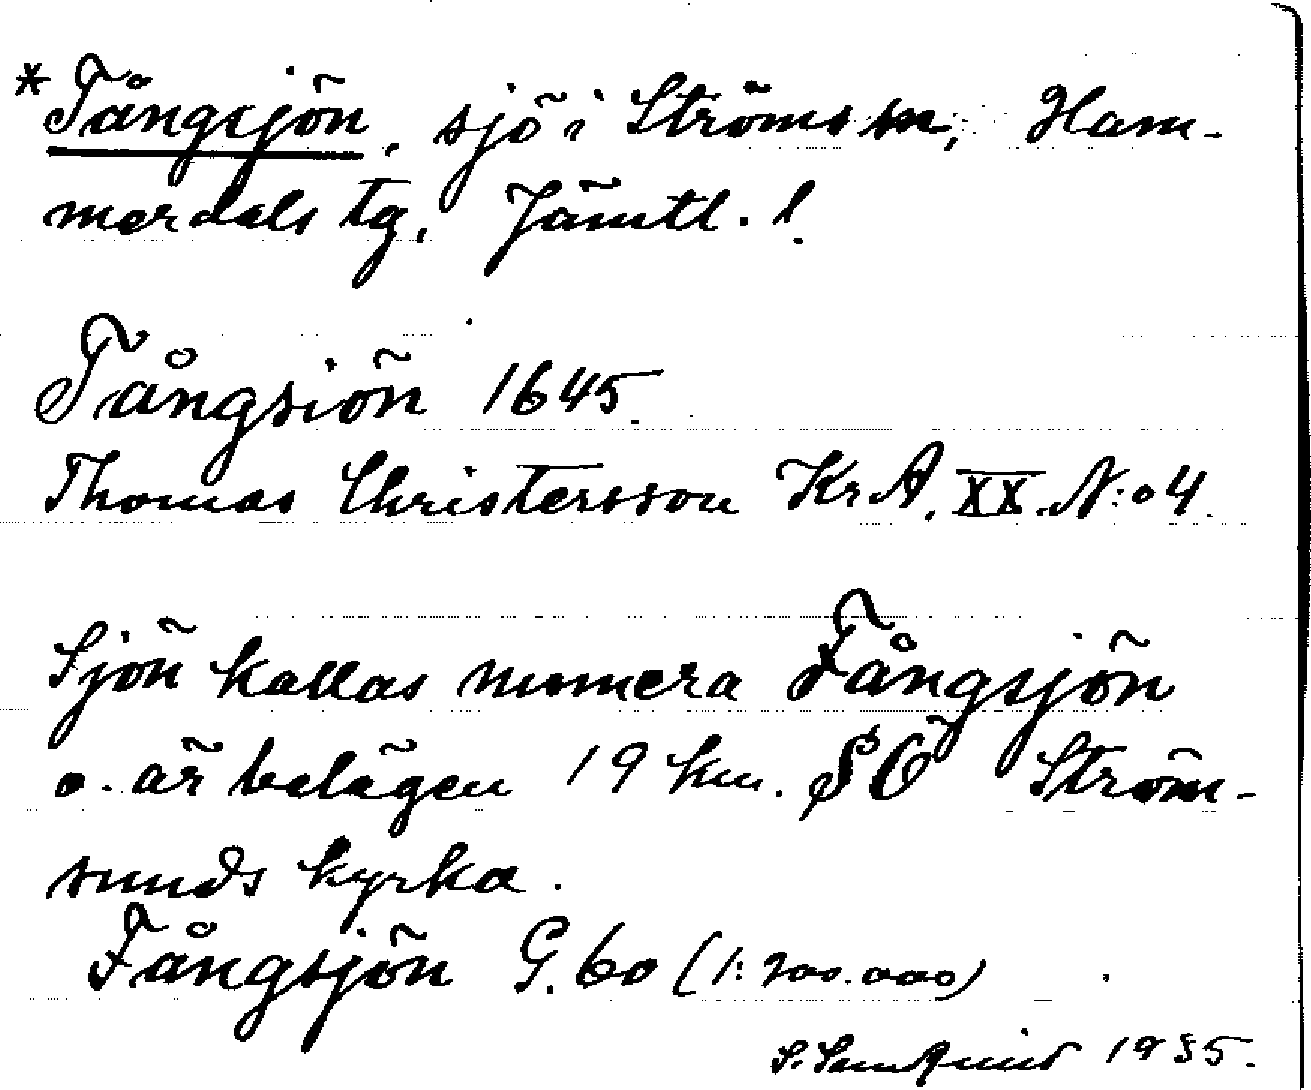 * Tångsjön, sjö i Ströms sn, Ham-
merdals tg, Jämtl. l.
Tångsiön 1645.
Thomas Christersson KrA. XX. N:o 4.
Sjön kallas numera Fångsjön
o. är belägen 19 km. SÖ Ström-
sunds kyrka.
Fångsjön G. 60 (1:200.000)
S. 1935.